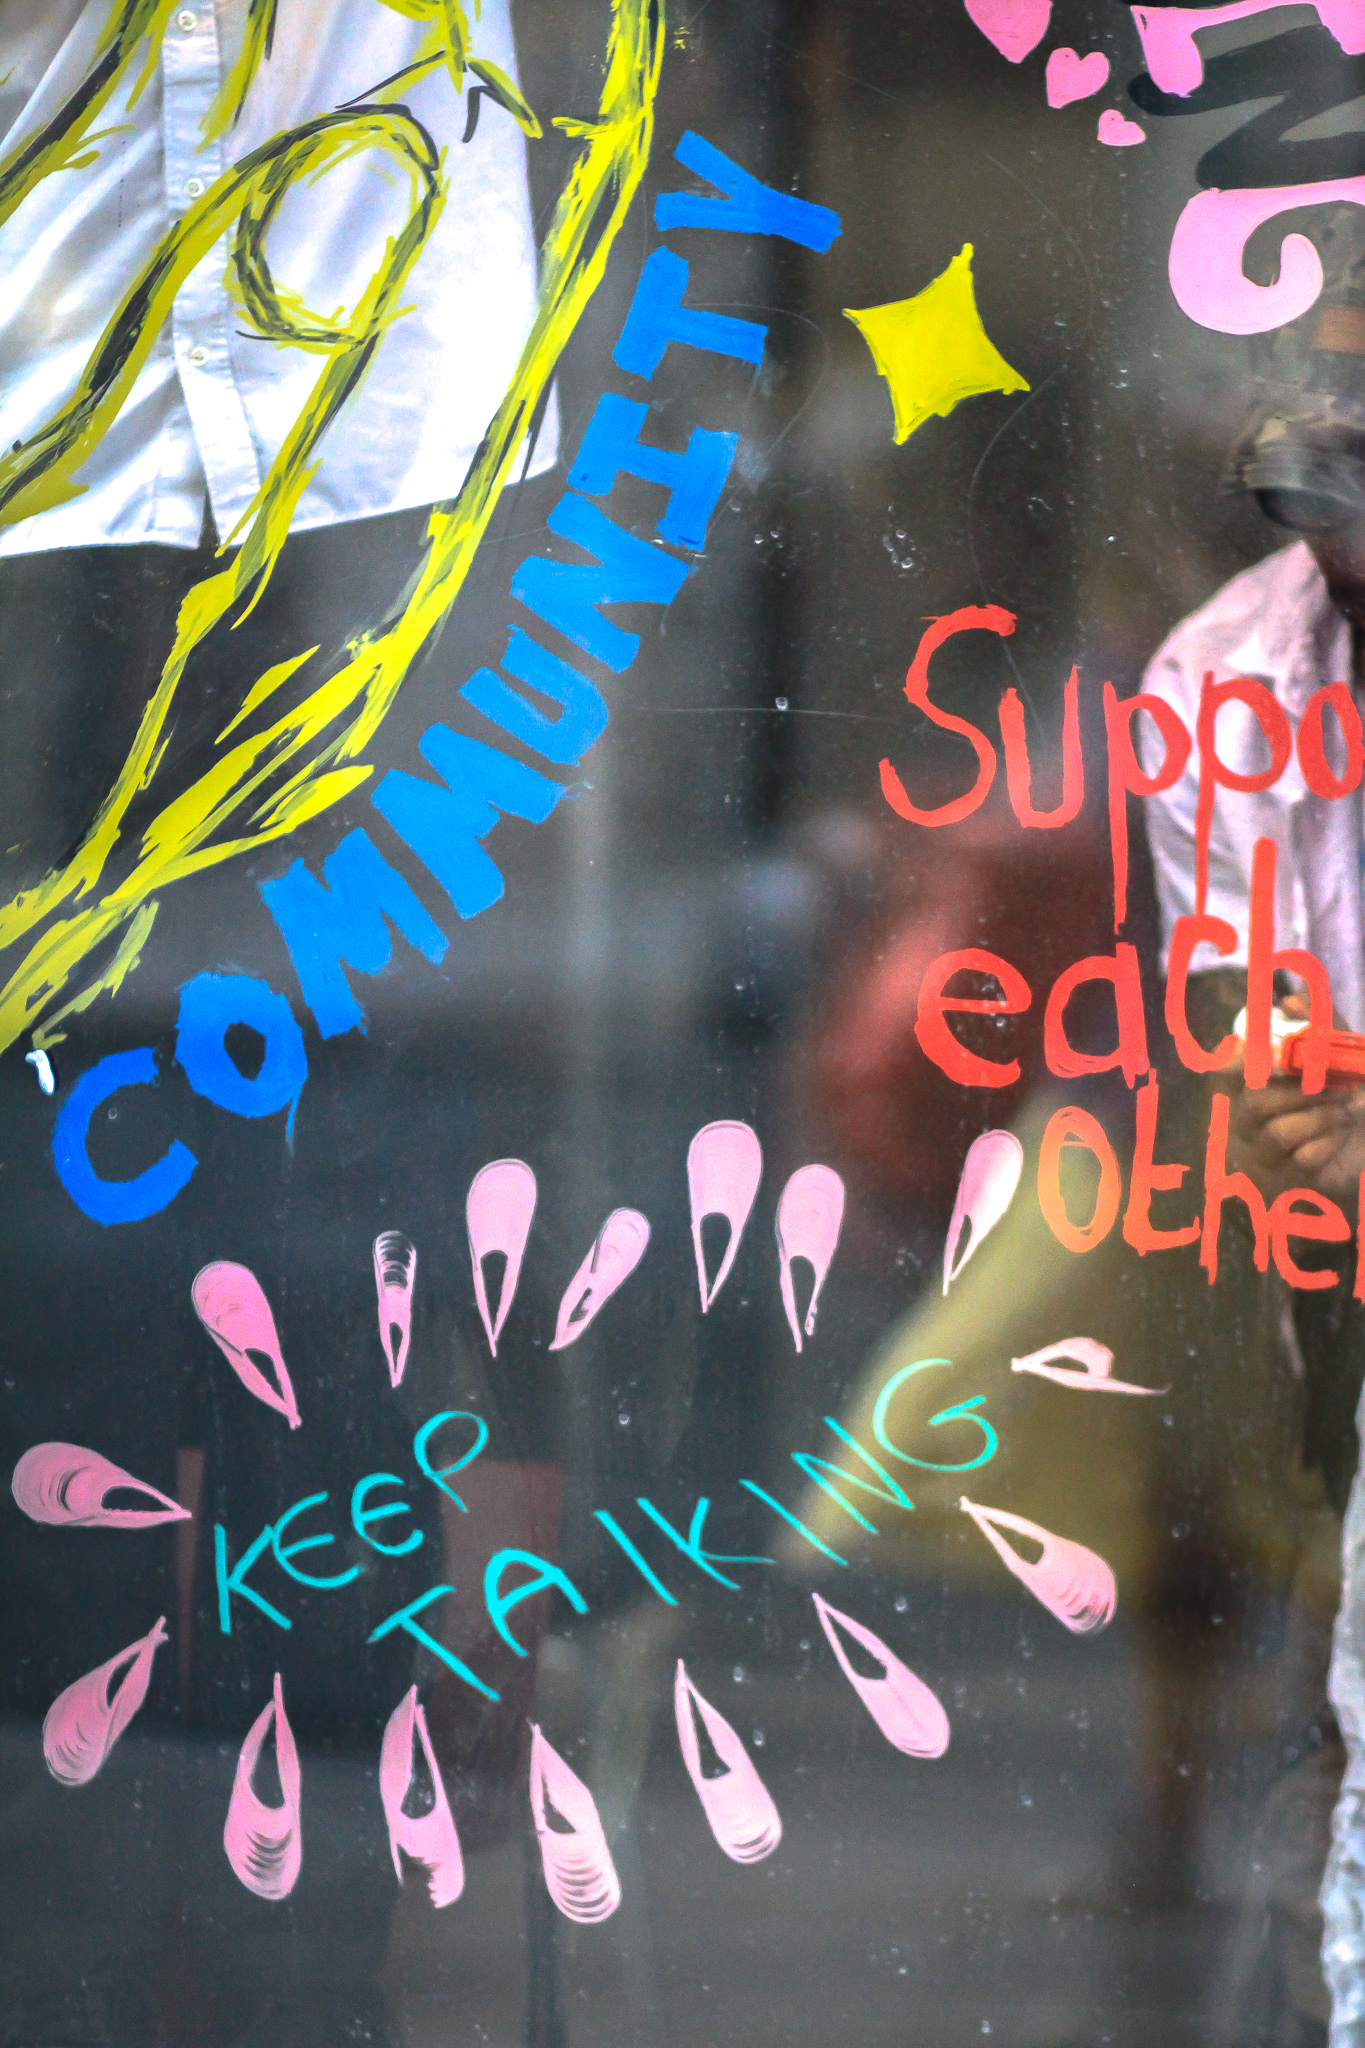 COMMUNITY
Suppo
each
other
KEEP
TALKING